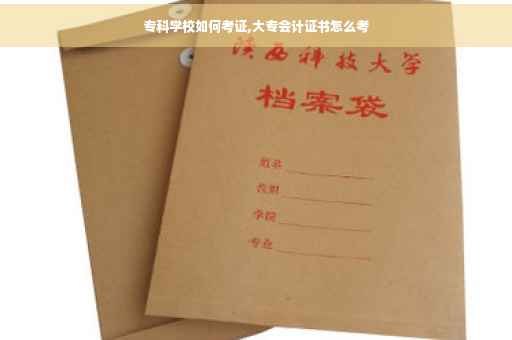 专科学校如何考证,大专会计证书怎么考
陕西科技大学
档案袋
学院
专业